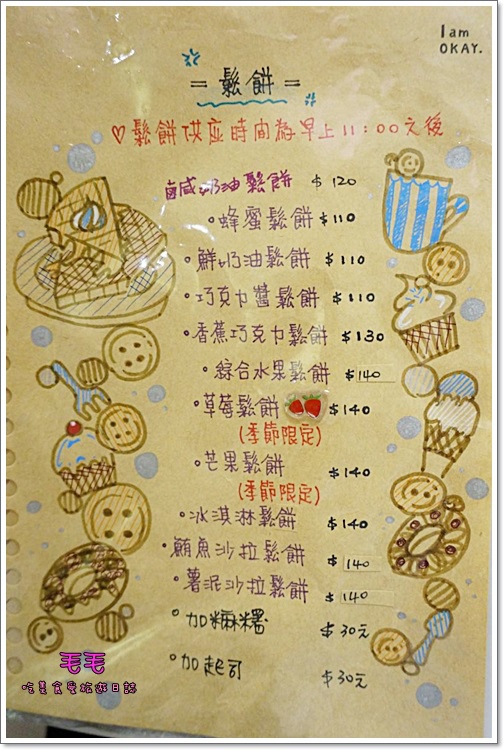 I am
OKAY.
= 鬆餅 =
♡鬆餅供應時間為早上11:00之後
鹹奶油鬆餅 $120
•蜂蜜鬆餅 $110
•鮮奶油鬆餅 $110
•巧克力醬鬆餅 $110
•香蕉巧克力鬆餅 $130
•綜合水果鬆餅 $140
•草莓鬆餅 $140
(季節限定)
•芒果鬆餅 $140
(季節限定)
•冰淇淋鬆餅 $140
•鮪魚沙拉鬆餅 $140
•薯泥沙拉鬆餅 $140
•加麻糬 $30元
•加起司 $30元
毛毛
吃美食愛旅遊日誌